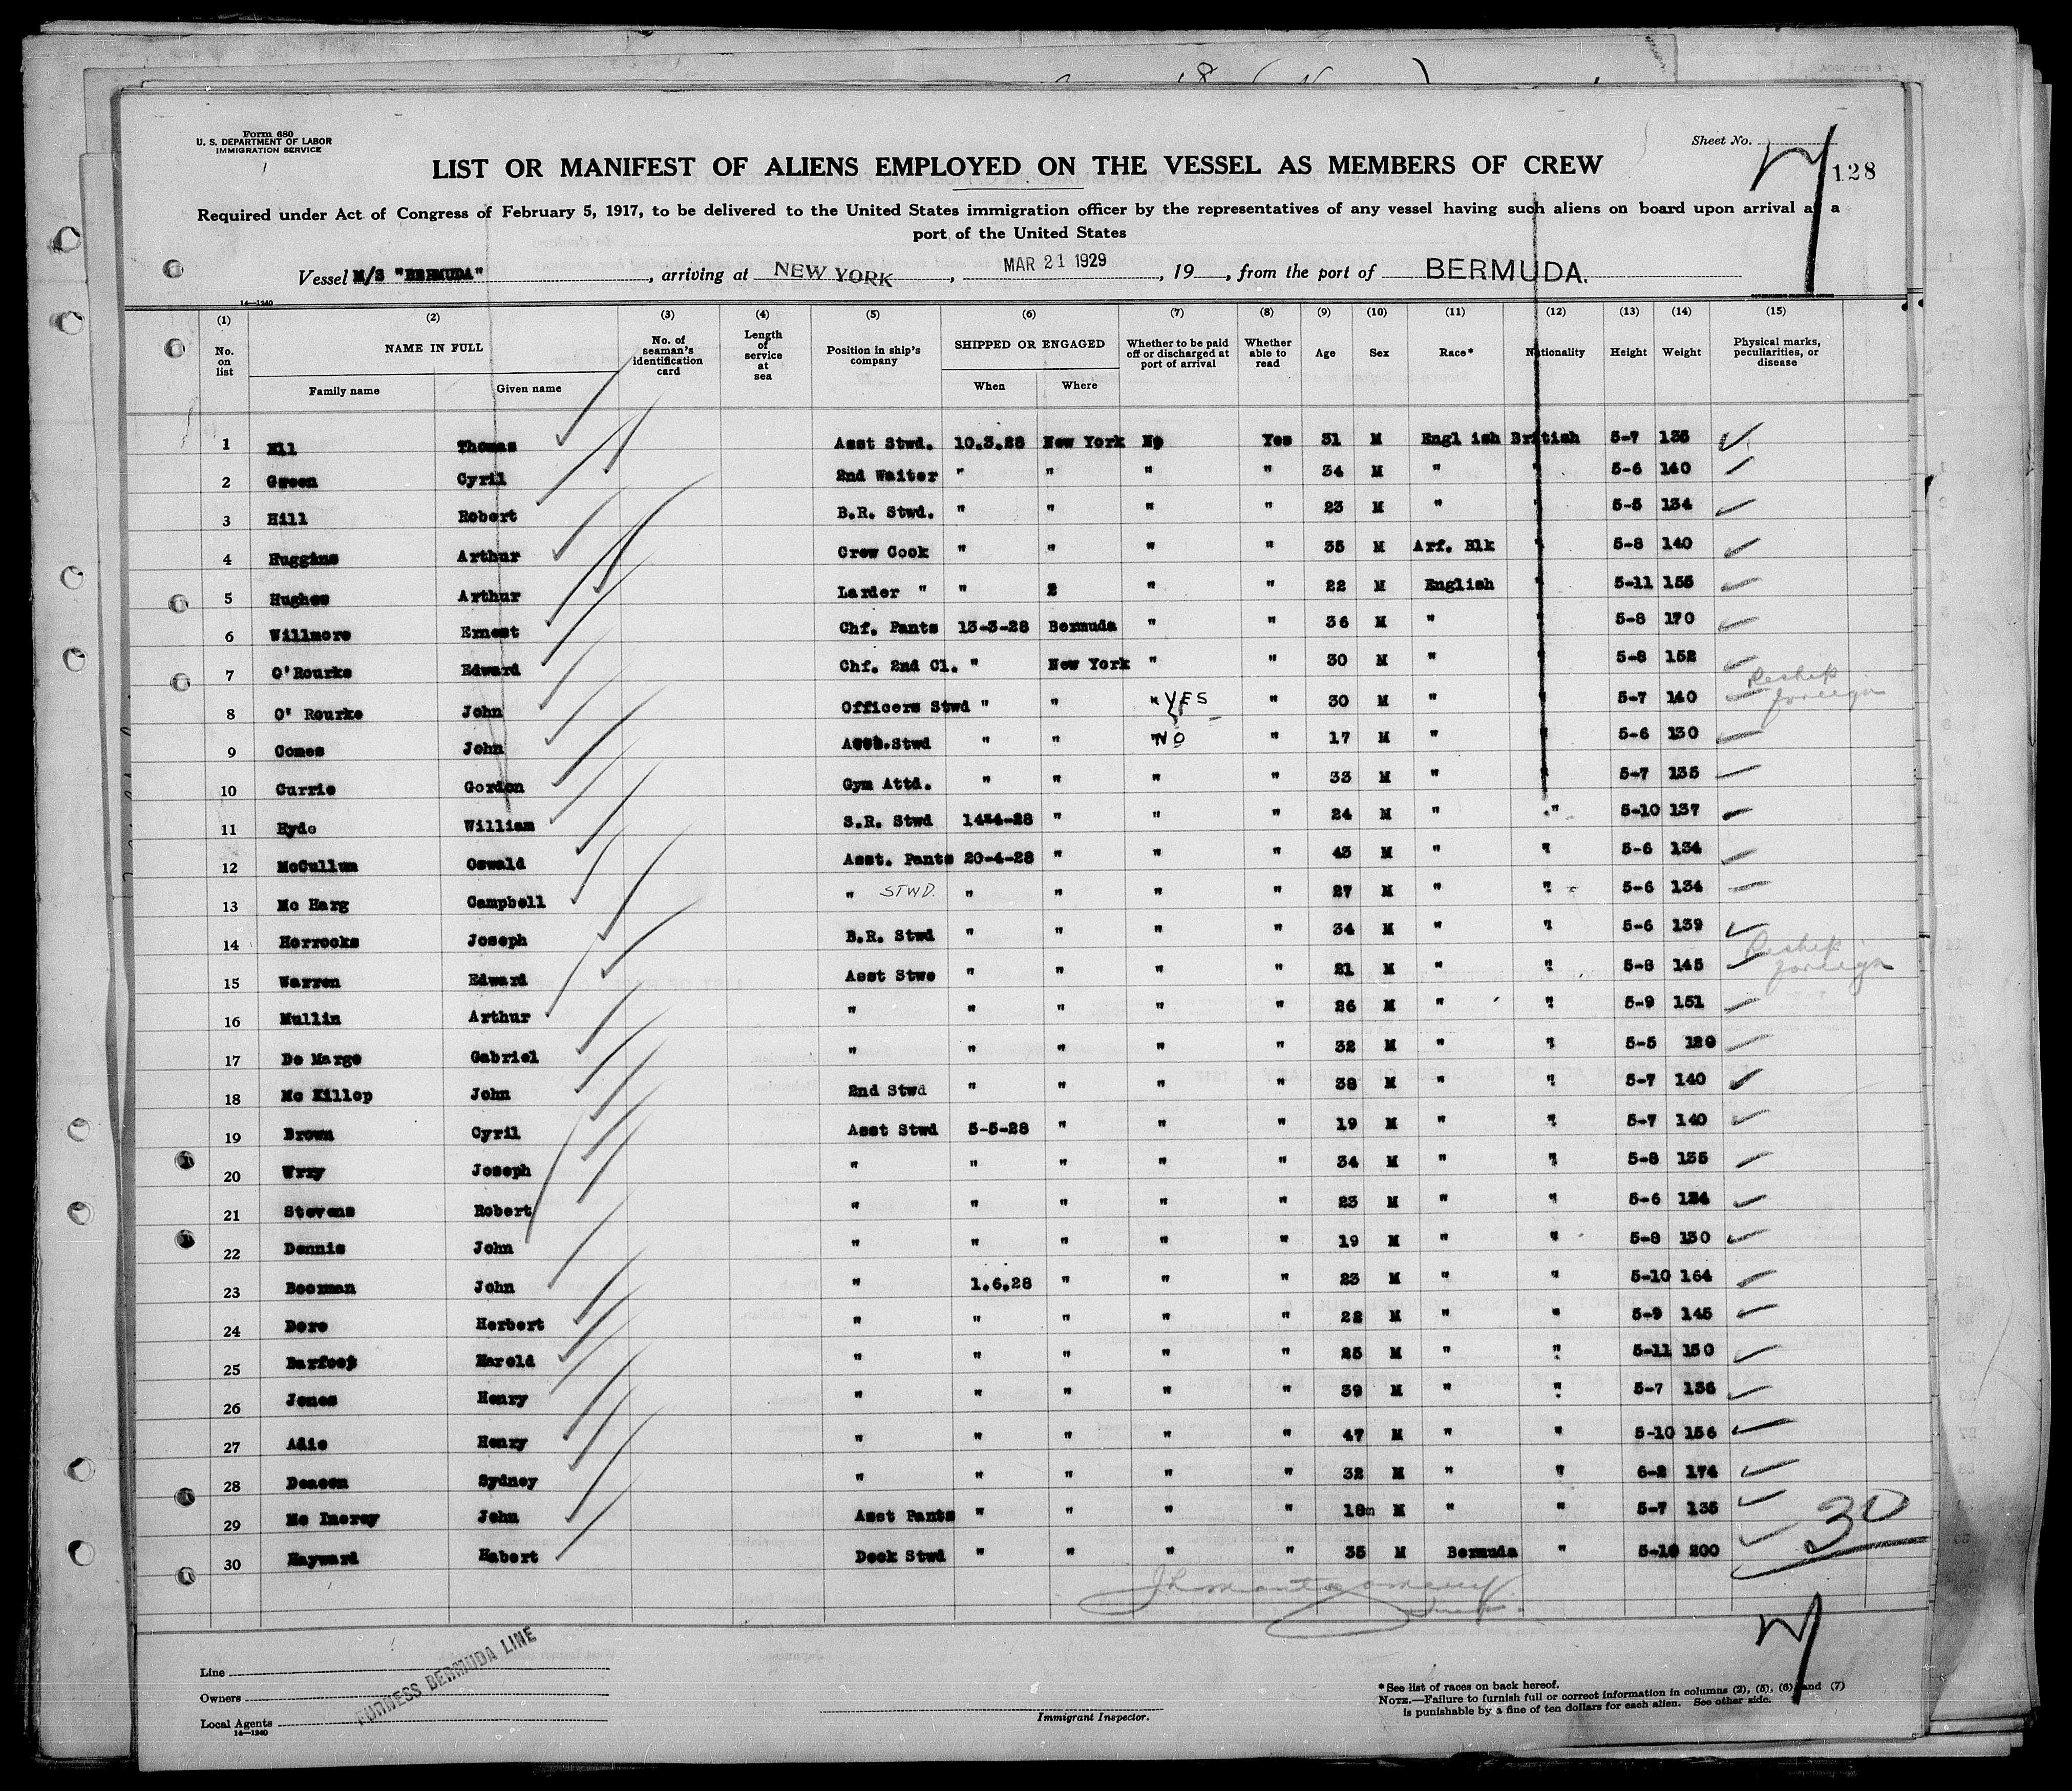 Form 680
U. S. DEPARTMENT OF LABOR
IMMIGRATION SERVICE
Sheet No.
128
LIST OR MANIFEST OF ALIENS EMPLOYED ON THE VESSEL AS MEMBERS OF CREW
Required under Act of Congress of February 5, 1917, to be delivered to the United States immigration officer by the representatives of any vessel having such aliens on board upon arrival at a
port of the United States
Vessel M/S "BERMUDA", arriving at NEW YORK, MAR 21 1929, 19, from the port of BERMUDA.
14—1240
(1) (2) (3) (4) (5) (6) (7) (8) (9) (10) (11) (12) (13) (14) (15)
No. on list NAME IN FULL Family name Given name No. of seaman's identification card Length of service at sea Position in ship's company SHIPPED OR ENGAGED When Where Whether to be paid off or discharged at port of arrival Whether able to read Age Sex Race* Nationality Height Weight Physical marks, peculiarities, or disease
1 Ell Thomas Asst Stwd. 10.3.28 New York No Yes 31 M Engl ish British 5-7 135
2 Green Cyril 2nd Waiter " " " " 34 M " " 5-6 140
3 Hill Robert B.R. Stwd. " " " " 23 M " " 5-5 134
4 Huggins Arthur Crew Cook " " " " 35 M Arf. Blk " 5-8 140
5 Hughes Arthur Larder " " " " 22 M English " 5-11 155
6 Willmore Ernest Chf. Pants 13-3-28 Bermuda " " 36 M " " 5-8 170
7 O'Rourke Edward Chf. 2nd Cl. " New York " " 30 M " " 5-8 152
8 O' Rourke John Officers Stwd " " " YES " 30 M " " 5-7 140 Reship foreign
9 Comes John Asst.Stwd " " NO " 17 M " " 5-6 130
10 Currie Gordon Gym Attd. " " " " 33 M " " 5-7 135
11 Hyde William S.R. Stwd 14-4-28 " " " 24 M " " 5-10 137
12 McCullum Oswald Asst. Pants 20-4-28 " " " 43 M " " 5-6 134
13 Mc Harg Campbell " STWD. " " " " 27 M " " 5-6 134
14 Horrocks Joseph B.R. Stwd " " " " 34 M " " 5-6 139
15 Warren Edward Asst Stwe " " " " 21 M " " 5-8 145 Reship foreign
16 Mullin Arthur " " " " " 26 M " " 5-9 151
17 De Marge Gabriel " " " " " 32 M " " 5-5 120
18 Mc Killop John 2nd Stwd " " " " 38 M " " 5-7 140
19 Brown Cyril Asst Stwd 5-5-28 " " " 19 M " " 5-7 140
20 Wrxy Joseph " " " " " 34 M " " 5-8 135
21 Stevens Robert " " " " " 23 M " " 5-6 134
22 Dennis John " " " " " 19 M " " 5-8 130
23 Beerman John " 1.6.28 " " " 23 M " " 5-10 164
24 Dore Herbert " " " " " 22 M " " 5-9 145
25 Barfoot Harold " " " " " 25 M " " 5-11 150
26 Jones Henry " " " " " 39 M " " 5-7 136
27 Adie Henry " " " " " 47 M " " 5-10 156
28 Deacon Sydney " " " " " 32 M " " 6-2 174
29 Mc Inerey John Asst Pants " " " " 18m M " " 5-7 135
30 Hayward Habert Deck Stwd " " " " 35 M Bermuda " 5-10 200
30
Line
Owners
Local Agents
FURNESS BERMUDA LINE
14—1240
Immigrant Inspector.
*See list of races on back hereof.
NOTE.—Failure to furnish full or correct information in columns (2), (5), (6), and (7)
is punishable by a fine of ten dollars for each alien. See other side.